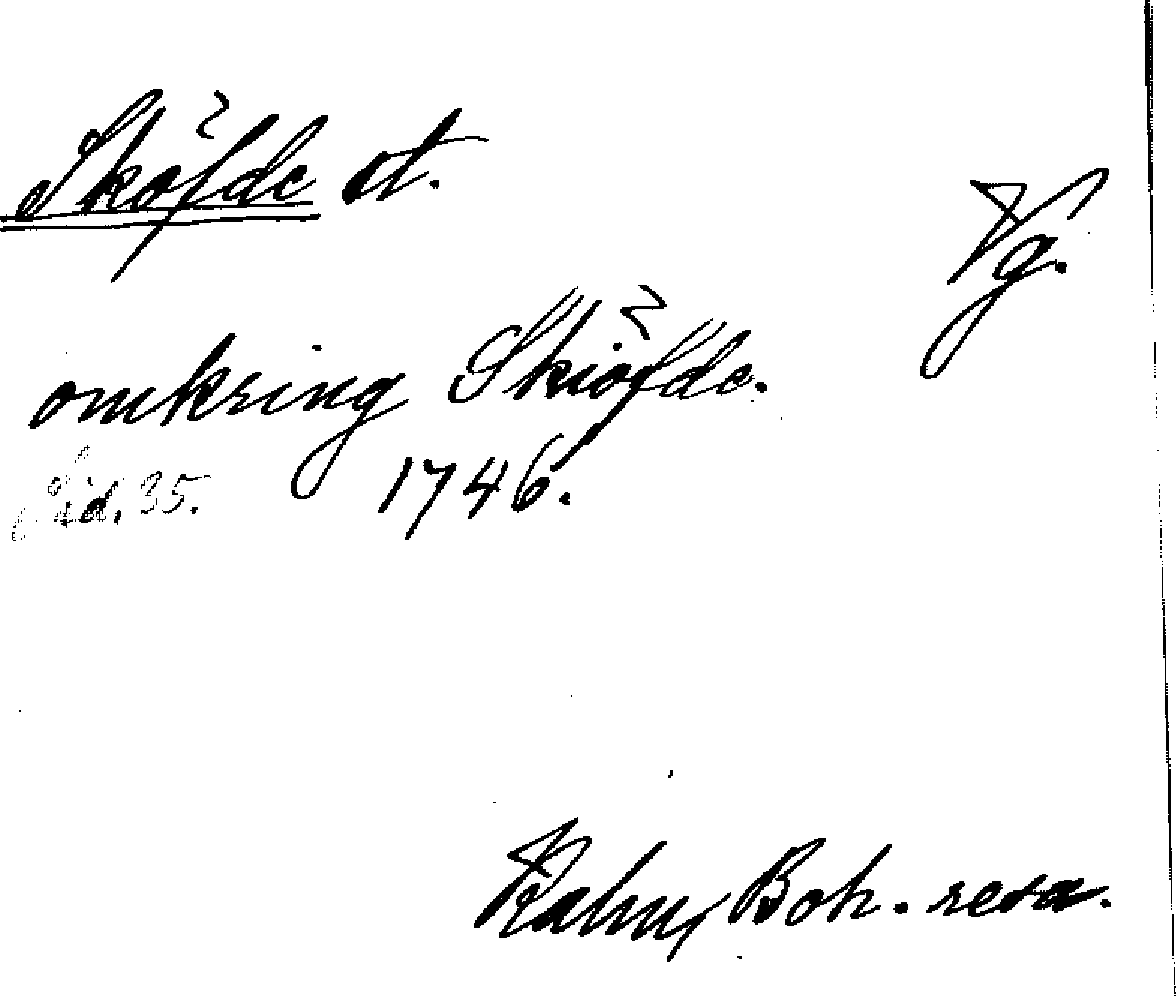 Sköfde st.
Vg.
omkring Skiöfde.
sid. 35. 1746.
Kalm, Boh. resa.